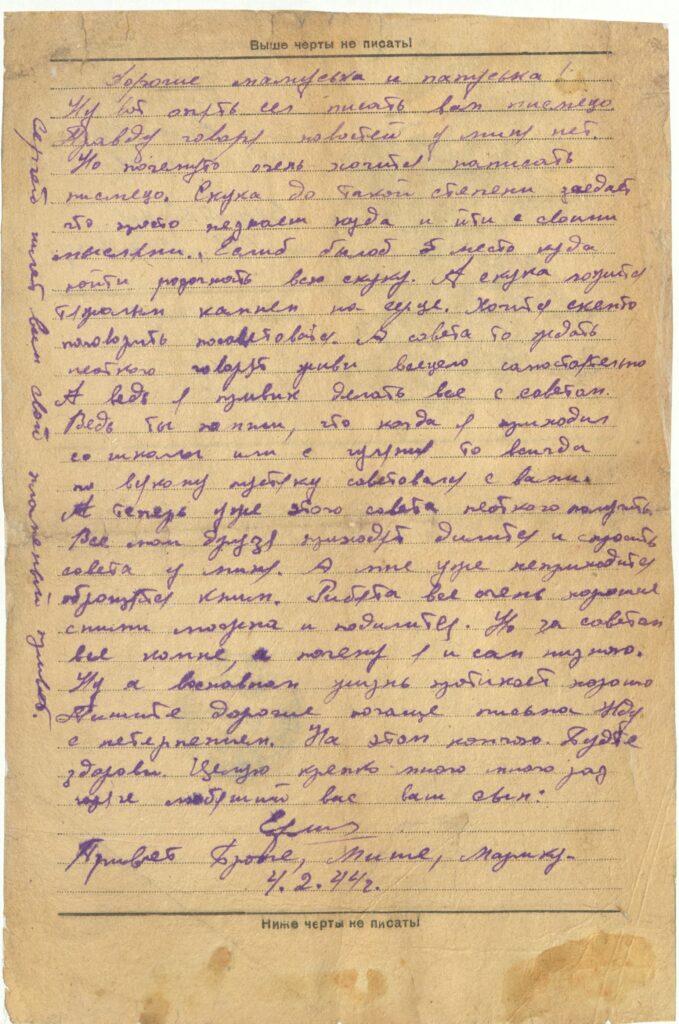 Выше черты не писать!
Дорогие мамуська и папуська!
Ну вот опять сел писать вам писмецо.
Правду говоря новостей у миня нет.
Но почемуто очень хочится написать
писмецо. Скука до такой степени заедает
что просто незнаеш куда и йти с своими
мыслями. Еслиб былоб место куда
пойти разогнать всю скуку. А скука ложится
тяжолым камнем на серце. Хочится скемто
поговорить посоветоватся. А совета то ждать
неоткого говорят живи всецело самостоятельно
А ведь я привик делать все с советам.
Ведь ты помниш, что когда я приходил
со школы или с гуляния то всигда
по всякому пустяку советовался с вами.
А теперь уже этого совета неоткого получить.
Все мои друзя приходят дилится и спросить
совета у миня. А мне уже неприходится
обращатся кним. Рибята все очень хорошие
сними можна и подилится. Но за советам
все комне, а почему я и сам низнаю.
Ну а воснавном жизнь протикает хорошо
Пишите дорогие почаще письма Жду
с нетерпением. На этом кончаю. Будте
здоровы. Целую крепко много много раз
любящий вас ваш сын:
Привет Броне, Мише, Марику.
4.2.44г.
Ниже черты не писать!
Сергей шлет вам свой пламеный привет.